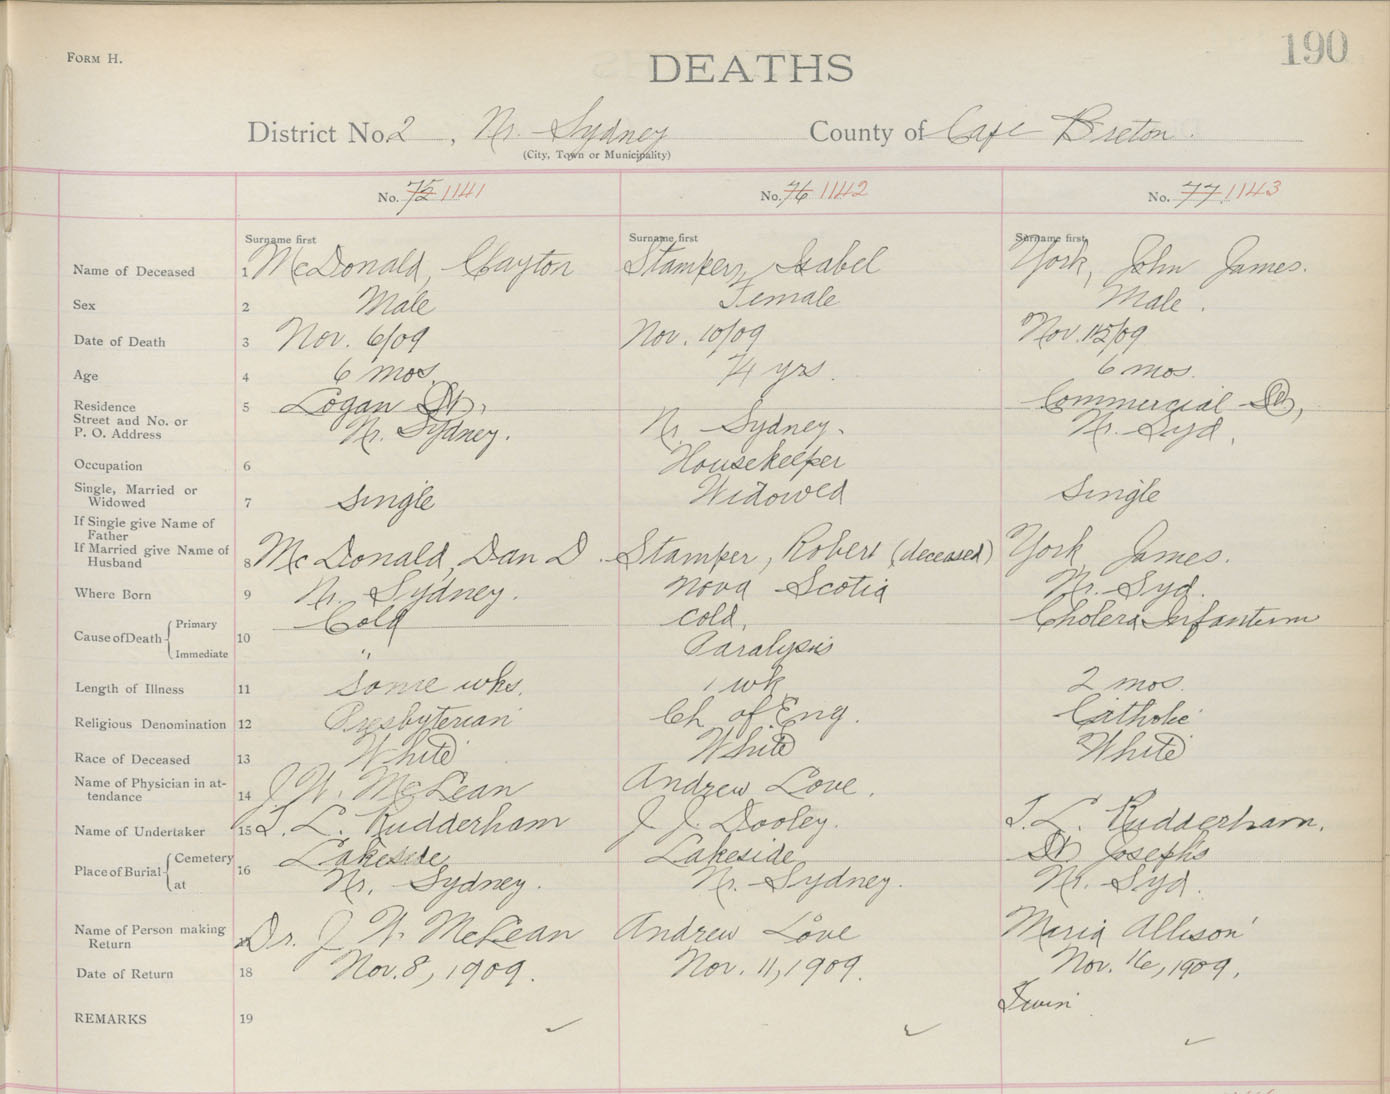 FORM H.
190
DEATHS
District No. 2, Nr. Sydney County of Cape Breton.
(City, Town or Municipality)
No. 75 1141 No. 76 1142 No. 77 1143
Surname first Surname first Surname first
Name of Deceased 1 McDonald, Clayton Stamper, Isabel York, John James.
Sex 2 Male Female Male.
Date of Death 3 Nov. 6/09 Nov. 10/09 Nov. 15/09
Age 4 6 mos. 74 yrs. 6 mos.
Residence 5 Logan St., Commercial St.,
Street and No. or
P. O. Address Nr. Sydney. Nr. Sydney. Nr. Syd.
Occupation 6 Housekeeper
Single, Married or
Widowed 7 Single Widowed Single
If Single give Name of
Father
If Married give Name of
Husband 8 McDonald, Dan D. Stamper, Robert (deceased) York, James.
Where Born 9 Nr. Sydney. Nova Scotia Nr. Syd.
Cause of Death { Primary 10 Cold Cold, Cholera Infantum
Immediate " Paralysis
Length of Illness 11 Some wks. 1 wk 2 mos.
Religious Denomination 12 Presbyterian Ch of Eng. Catholic
Race of Deceased 13 White White White
Name of Physician in at-
tendance 14 J. W. McLean Andrew Love.
Name of Undertaker 15 L. Rudderham J J. Dooley. L. Rudderham.
Place of Burial { Cemetery 16 Lakeside Lakeside St Joseph's
at Nr. Sydney. Nr. Sydney. Nr. Syd.
Name of Person making
Return Dr. J. W. McLean Andrew Love Maria Allison
Date of Return 18 Nov. 8, 1909. Nov. 11, 1909. Nov. 16, 1909.
Twin
REMARKS 19